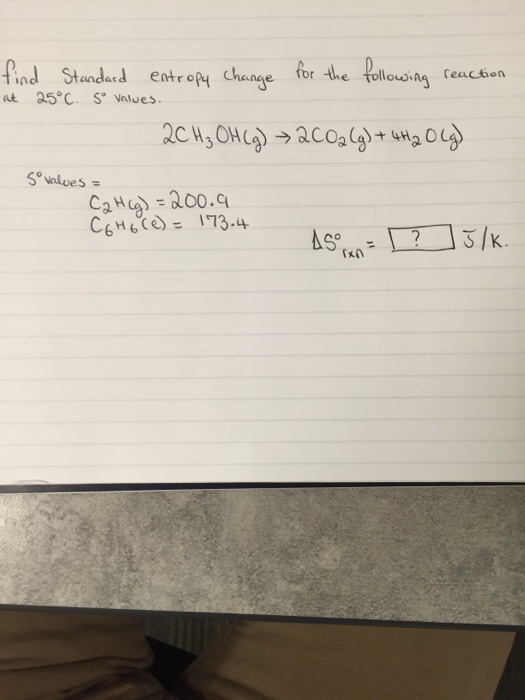 find Standard entropy change for the following reaction
at 25°C. S° values.
2CH₃OH(g) → 2CO₂(g) + 4H₂O(g)
S° values =
C₂H(g) = 200.9
C₆H₆(l) = 173.4
ΔS°rxn = ? J/K.